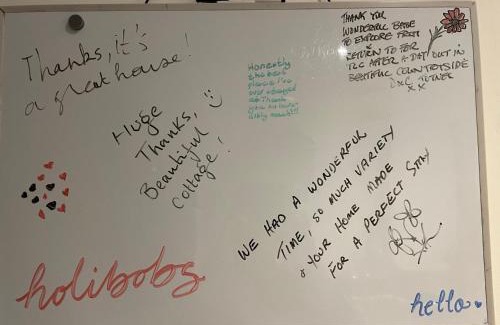 Thanks, it's
a great house!
Huge
Thanks,
Beautiful
Cottage!
Honestly
the best
place I've
THANK YOU
WONDERFUL BASE
TO EXPLORE FROM
RETURN TO FOR
TLC AFTER A DAY OUT IN
BEAUTIFUL COUNTRYSIDE
XX
WE HAD A WONDERFUL
TIME, SO MUCH VARIETY
& YOUR HOME MADE
FOR A PERFECT STAY
holibobs
hello